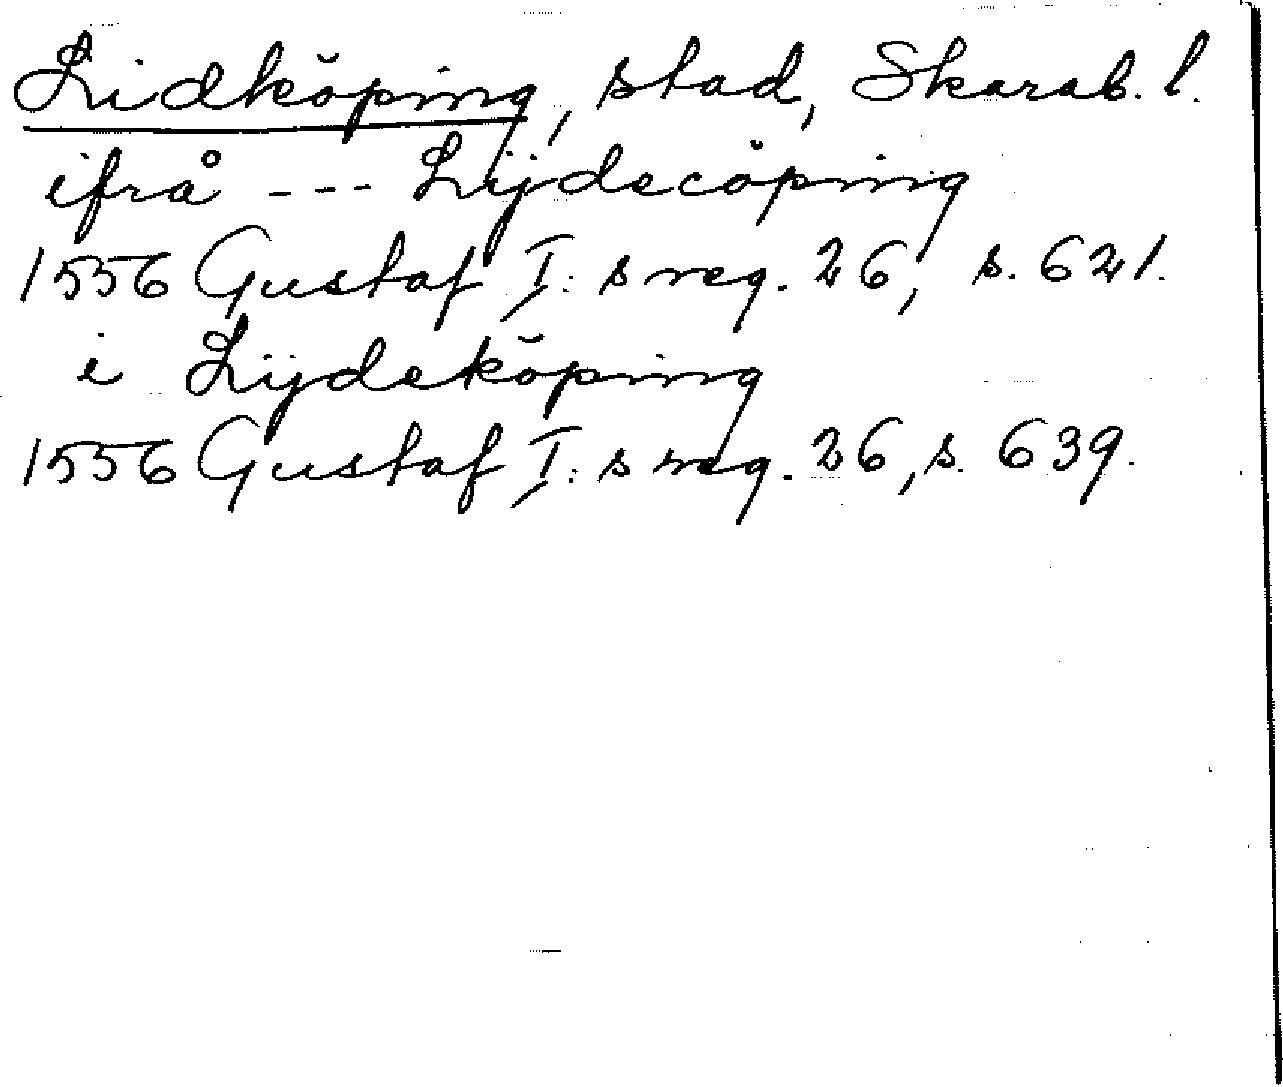 Lidköping, stad, Skarab. l.
ifrå --- Lijdecöping
1556 Gustaf I:s reg. 26, s. 621.
i Lijdeköping
1556 Gustaf I:s reg. 26, s. 639.